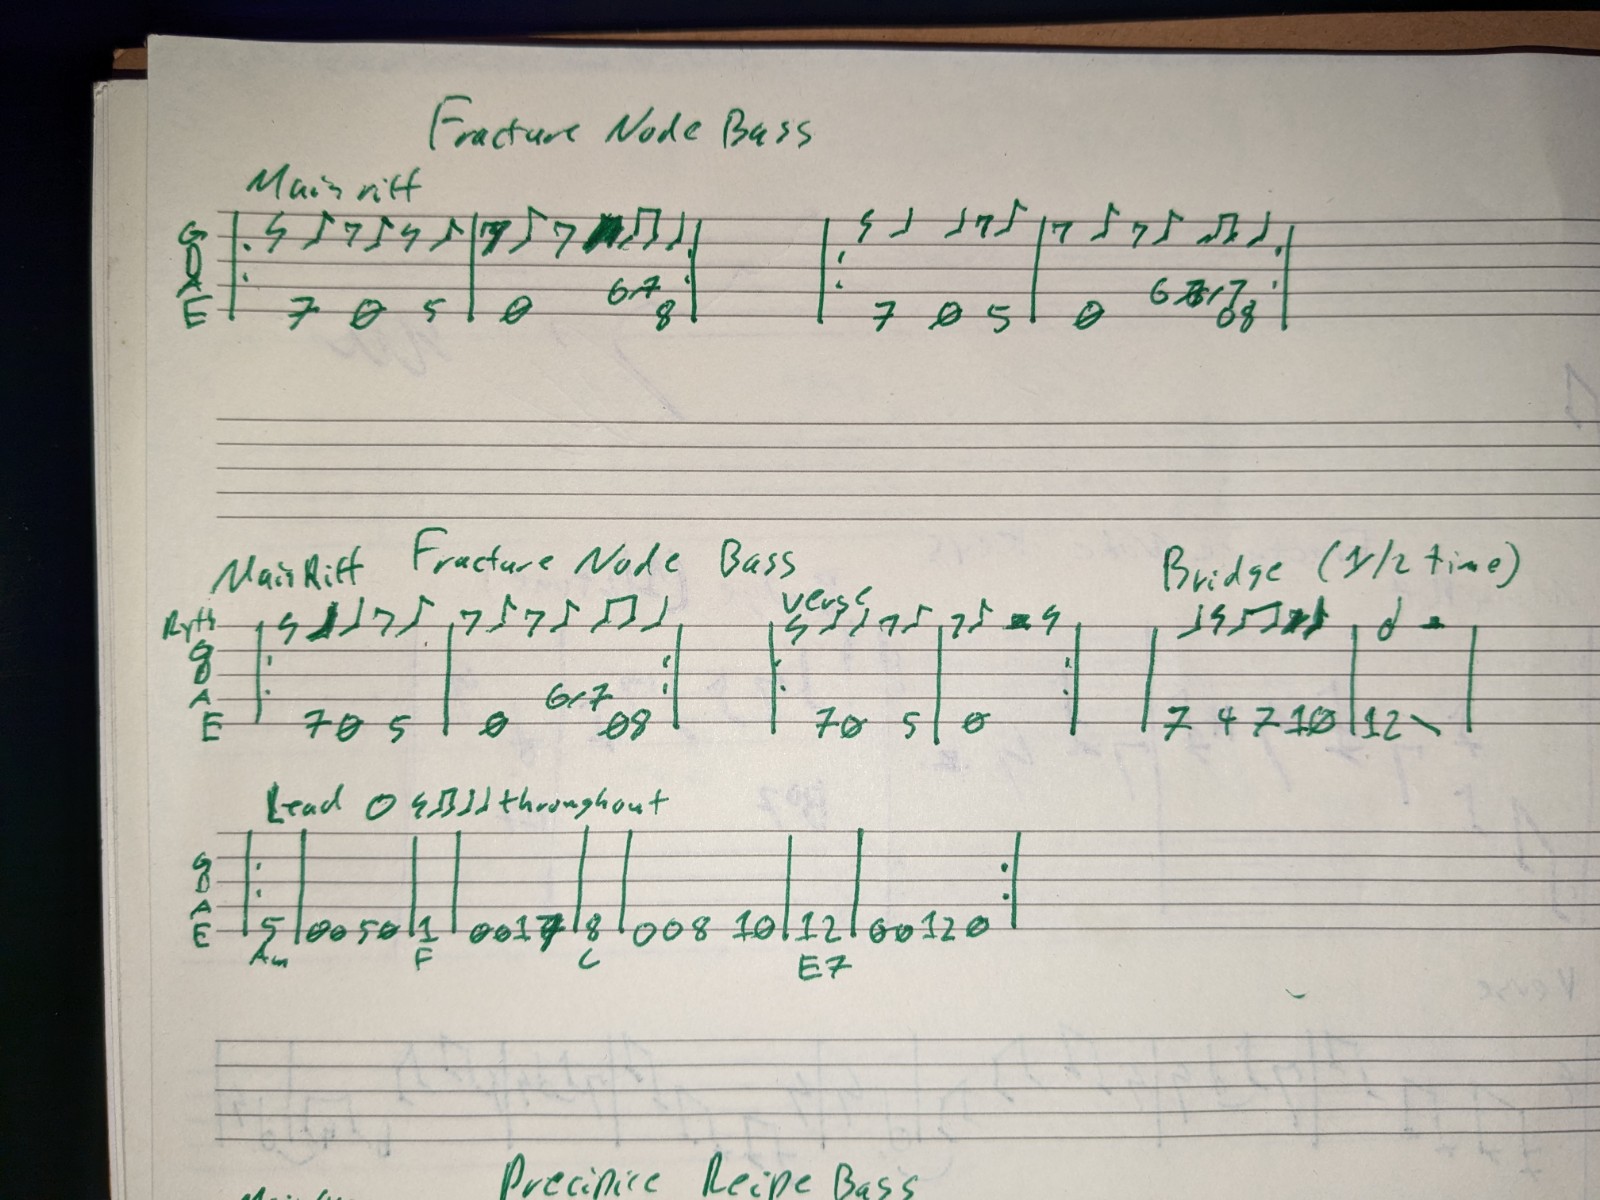 Fracture Node Bass
Main riff
G
D
A
E
7 0 5 0 6 7 8
7 0 5 0 6 7 0 8
Main Riff Fracture Node Bass Verse Bridge (1/2 time)
Ryth
G
D
A
E
7 0 5 0 6 7 0 8
7 0 5 0
7 4 7 10 12
Lead throughout
G
D
A
E
5 0 0 5 0 1 0 0 1 8 0 0 8 10 12 0 0 12 0
Am F C E7
Precipice Recipe Bass